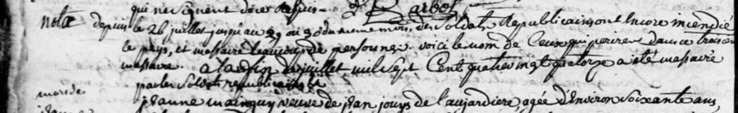 qui ne signent
nota depuis le 26 juillet jusqu'au 29 ou 30 du meme mois, des soldats Republicains ont Encore incendié
le pays, et massacré beaucoup de personnes voici le nom de Ceux qui perirent dans ce troisieme
massacre. a la fin de juillet mil sept Cent quatre vingt quatorze a été massacré
par les soldats republicains
mort de jeanne mainguy veuve de jean jouys de l'aujardiere, agée d'Environ soixante ans,